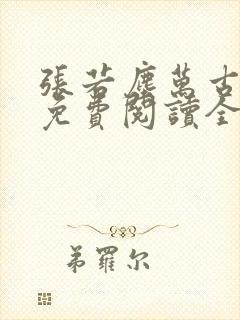 張若塵萬古
免費閱讀全
弟羅尔